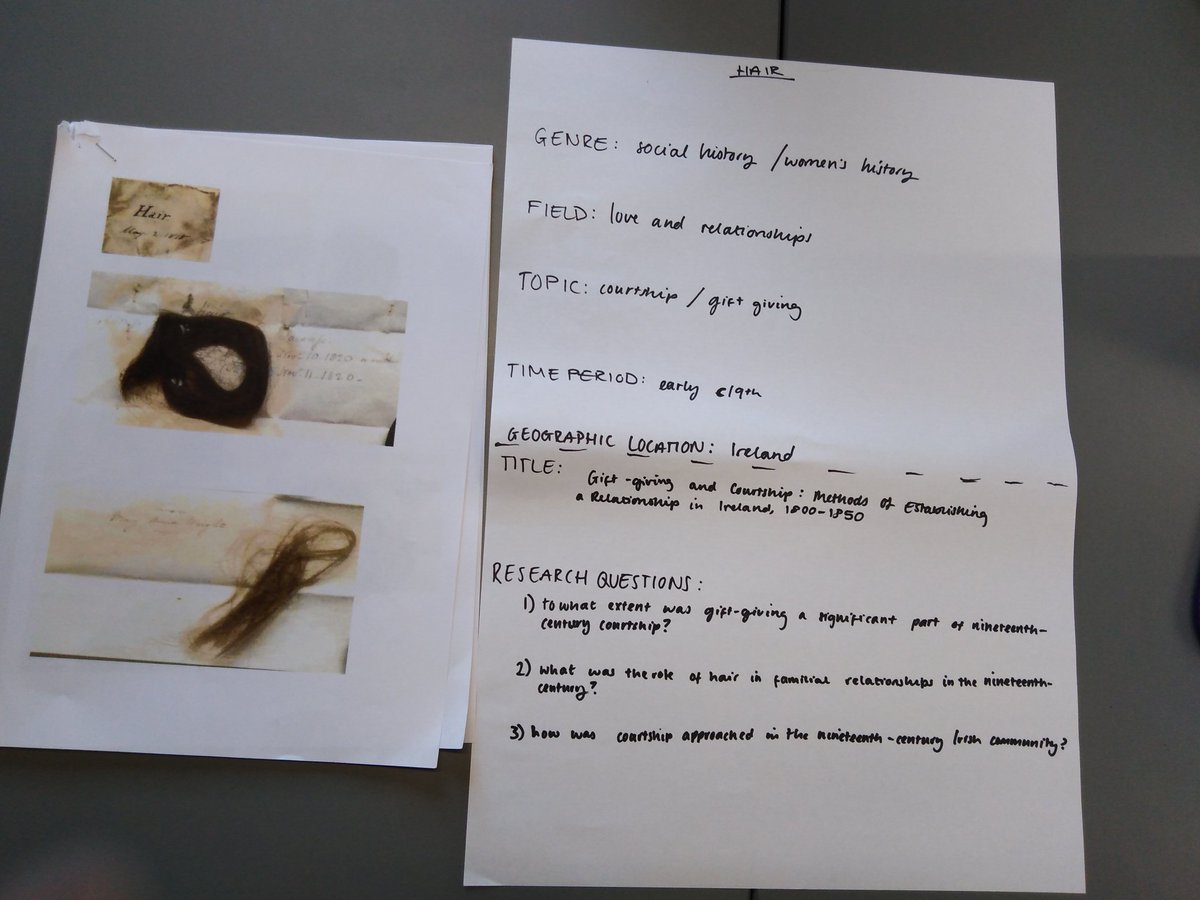 Hair
10. 1820
11. 1820.
HAIR
GENRE: social history / women's history
FIELD: love and relationships
TOPIC: courtship / gift giving
TIME PERIOD: early c19th
GEOGRAPHIC LOCATION: Ireland
TITLE: Gift-giving and Courtship: Methods of Establishing
a Relationship in Ireland, 1800-1850
RESEARCH QUESTIONS:
1) to what extent was gift-giving a significant part of nineteenth-
century courtship?
2) what was the role of hair in familial relationships in the nineteenth-
century?
3) how was courtship approached in the nineteenth-century Irish community?